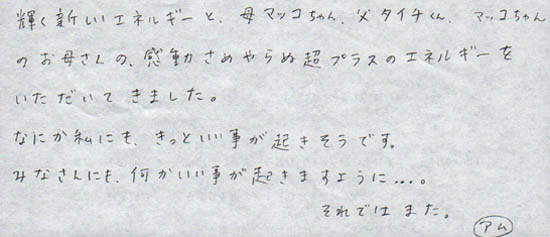 輝く新しいエネルギーと、母マッコちゃん、父タイチくん、マッコちゃん
のお母さんの、感動さめやらぬ超プラスのエネルギーを
いただいてきました。
なにか私にも、きっといい事が起きそうです。
みなさんにも、何かいい事が起きますように…。
それではまた。
アム